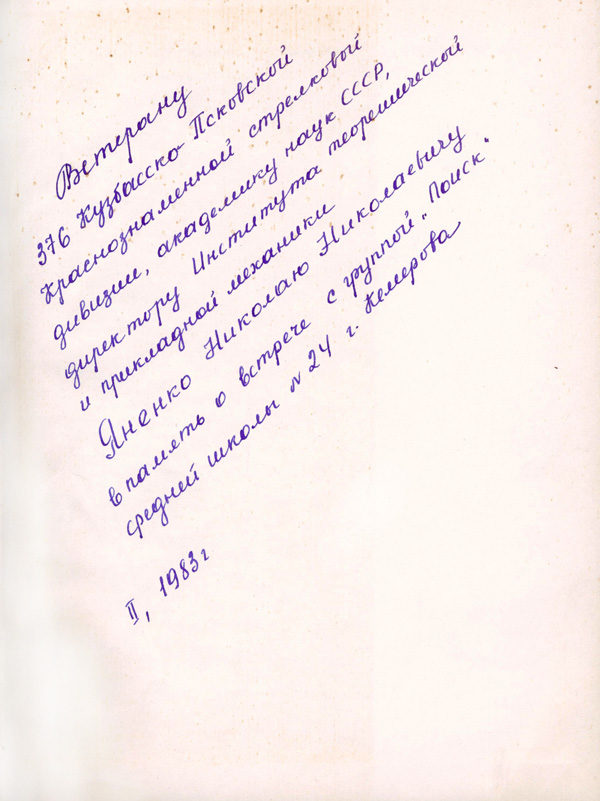 Ветерану
376 Кузбасско-Псковской
Краснознаменной стрелковой
дивизии, академику наук СССР,
директору Института теоретической
и прикладной механики
Яненко Николаю Николаевичу
в память о встрече с группой "Поиск"
средней школы № 24 г. Кемерова
II, 1983 г